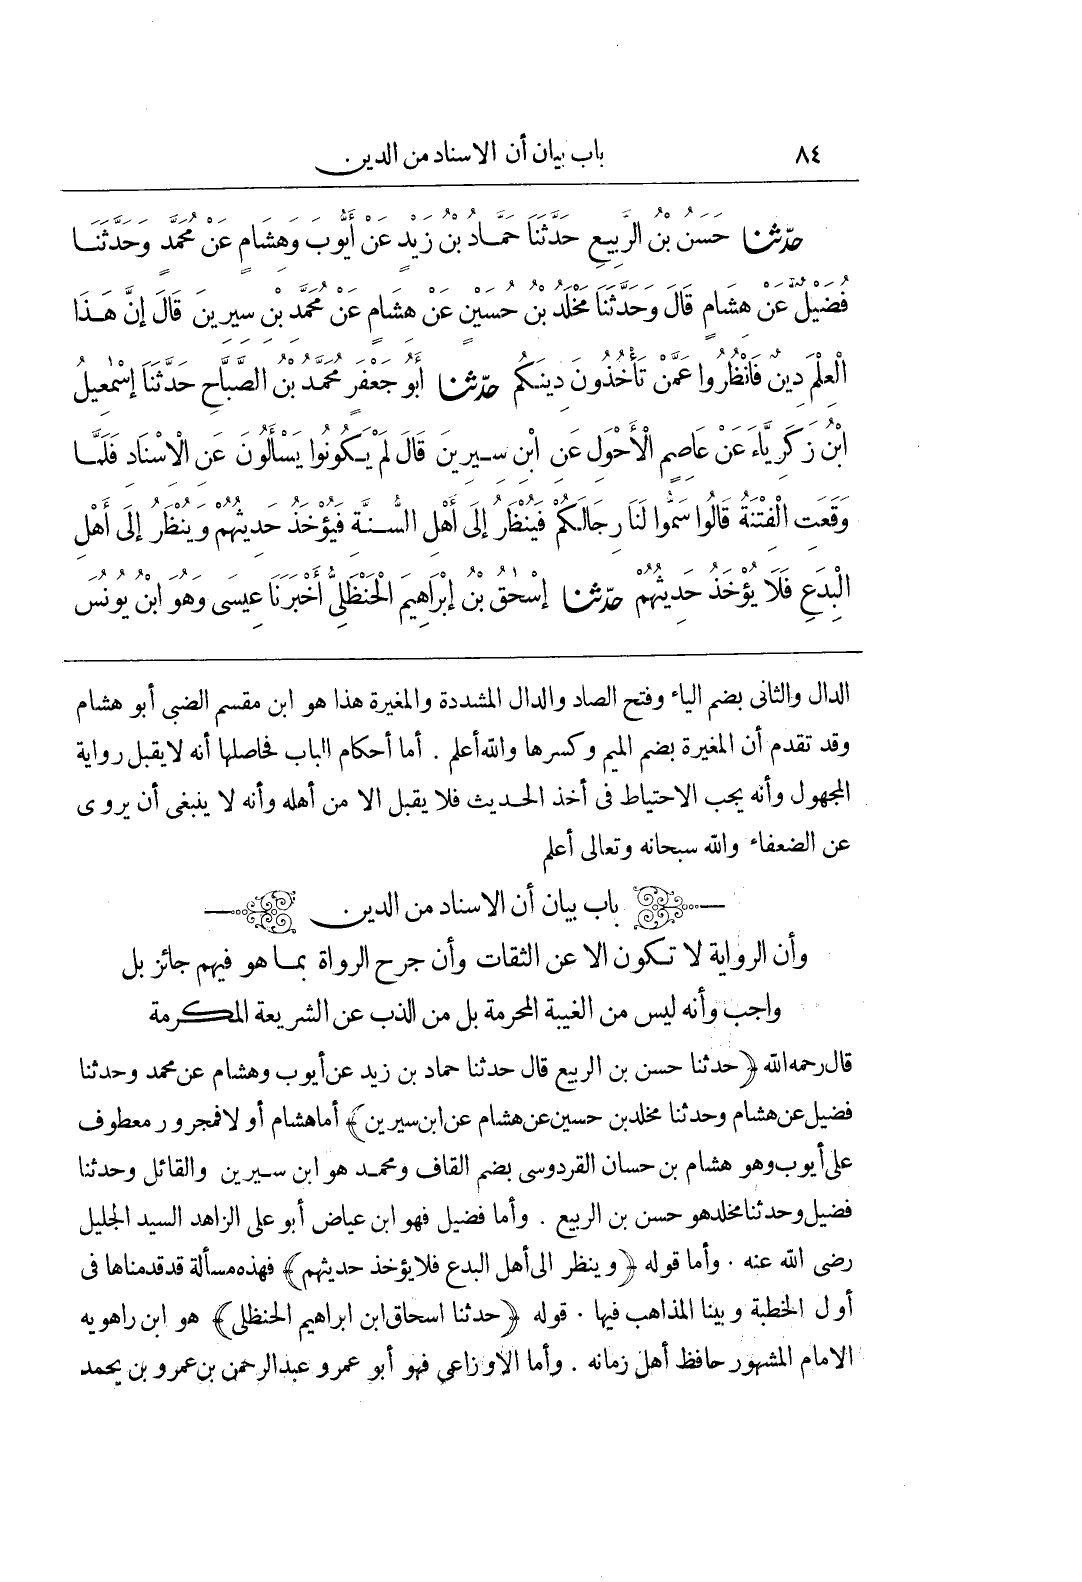 ٨٤ باب بيان أن الاسناد من الدين
حدّثنا حَسَنُ بْنُ الرَّبِيعِ حَدَّثَنَا حَمَّادُ بْنُ زَيْدٍ عَنْ أَيُّوبَ وَهِشَامٍ عَنْ مُحَمَّدٍ وَحَدَّثَنَا
فُضَيْلٌ عَنْ هِشَامٍ قَالَ وَحَدَّثَنَا مَخْلَدُ بْنُ حُسَيْنٍ عَنْ هِشَامٍ عَنْ مُحَمَّدِ بْنِ سِيرِينَ قَالَ إِنَّ هَذَا
الْعِلْمَ دِينٌ فَانْظُرُوا عَمَّنْ تَأْخُذُونَ دِينَكُمْ حدّثنا أَبُو جَعْفَرٍ مُحَمَّدُ بْنُ الصَّبَّاحِ حَدَّثَنَا إِسْمٰعِيلُ
ابْنُ زَكَرِيَّاءَ عَنْ عَاصِمٍ الْأَحْوَلِ عَنِ ابْنِ سِيرِينَ قَالَ لَمْ يَكُونُوا يَسْأَلُونَ عَنِ الْاسْنَادِ فَلَمَّا
وَقَعَتِ الْفِتْنَةُ قَالُوا سَمُّوا لَنَا رِجَالَكُمْ فَيُنْظَرُ إِلَى أَهْلِ السُّنَّةِ فَيُؤْخَذُ حَدِيثُهُمْ وَيُنْظَرُ إِلَى أَهْلِ
الْبِدَعِ فَلَا يُؤْخَذُ حَدِيثُهُمْ حدّثنا إِسْحٰقُ بْنُ إِبْرَاهِيمَ الْحَنْظَلِيُّ أَخْبَرَنَا عِيسَى وَهُوَ ابْنُ يُونُسَ
الدال والثانى بضم الياء وفتح الصاد والدال المشددة والمغيرة هذا هو ابن مقسم الضبى أبو هشام
وقد تقدم أن المغيرة بضم الميم وكسرها والله أعلم . أما أحكام الباب فحاصلها أنه لايقبل رواية
المجهول وأنه يجب الاحتياط فى أخذ الحديث فلا يقبل الا من أهله وأنه لا ينبغى أن يروى
عن الضعفاء والله سبحانه وتعالى أعلم
باب بيان أن الاسناد من الدين
وأن الرواية لا تكون الا عن الثقات وأن جرح الرواة بما هو فيهم جائز بل
واجب وأنه ليس من الغيبة المحرمة بل من الذب عن الشريعة المكرمة
قال رحمه الله ﴿حدثنا حسن بن الربيع قال حدثنا حماد بن زيد عن أيوب وهشام عن محمد وحدثنا
فضيل عن هشام وحدثنا مخلد بن حسين عن هشام عن ابن سيرين﴾ أما هشام أولا فمجرور معطوف
على أيوب وهو هشام بن حسان القردوسى بضم القاف ومحمد هو ابن سيرين والقائل وحدثنا
فضيل وحدثنا مخلد هو حسن بن الربيع . وأما فضيل فهو ابن عياض أبو على الزاهد السيد الجليل
رضى الله عنه . وأما قوله ﴿وينظر الى أهل البدع فلا يؤخذ حديثهم﴾ فهذه مسألة قد قدمناها فى
أول الخطبة وبينا المذاهب فيها . قوله ﴿حدثنا اسحاق ابن ابراهيم الحنظلى﴾ هو ابن راهويه
الامام المشهور حافظ أهل زمانه . وأما الاوزاعى فهو أبو عمرو عبدالرحمن بن عمرو بن يحمد